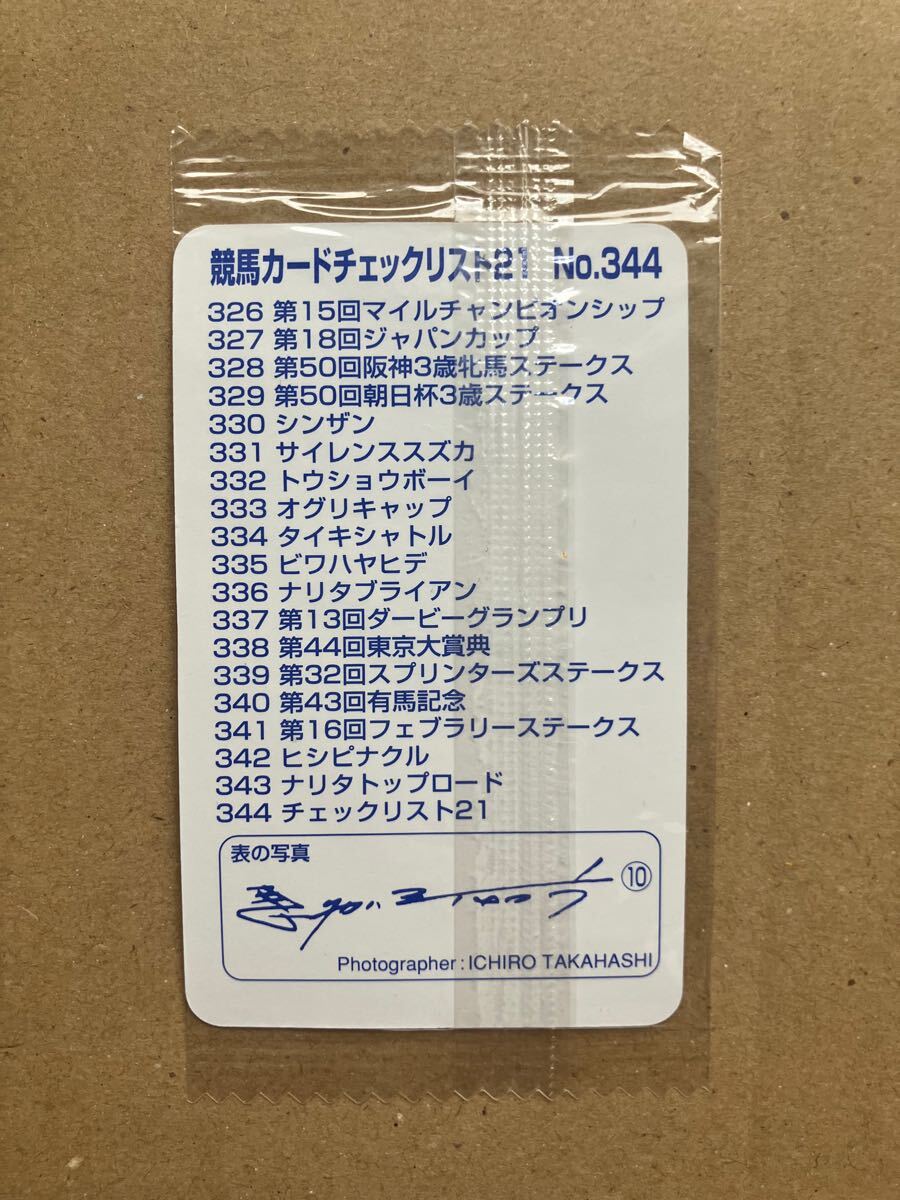 競馬カードチェックリスト21 No.344
326 第15回マイルチャンピオンシップ
327 第18回ジャパンカップ
328 第50回阪神3歳牝馬ステークス
329 第50回朝日杯3歳ステークス
330 シンザン
331 サイレンススズカ
332 トウショウボーイ
333 オグリキャップ
334 タイキシャトル
335 ビワハヤヒデ
336 ナリタブライアン
337 第13回ダービーグランプリ
338 第44回東京大賞典
339 第32回スプリンターズステークス
340 第43回有馬記念
341 第16回フェブラリーステークス
342 ヒシピナクル
343 ナリタトップロード
344 チェックリスト21
表の写真
⑩
Photographer : ICHIRO TAKAHASHI